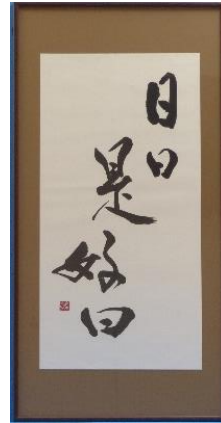 日日
是
好日